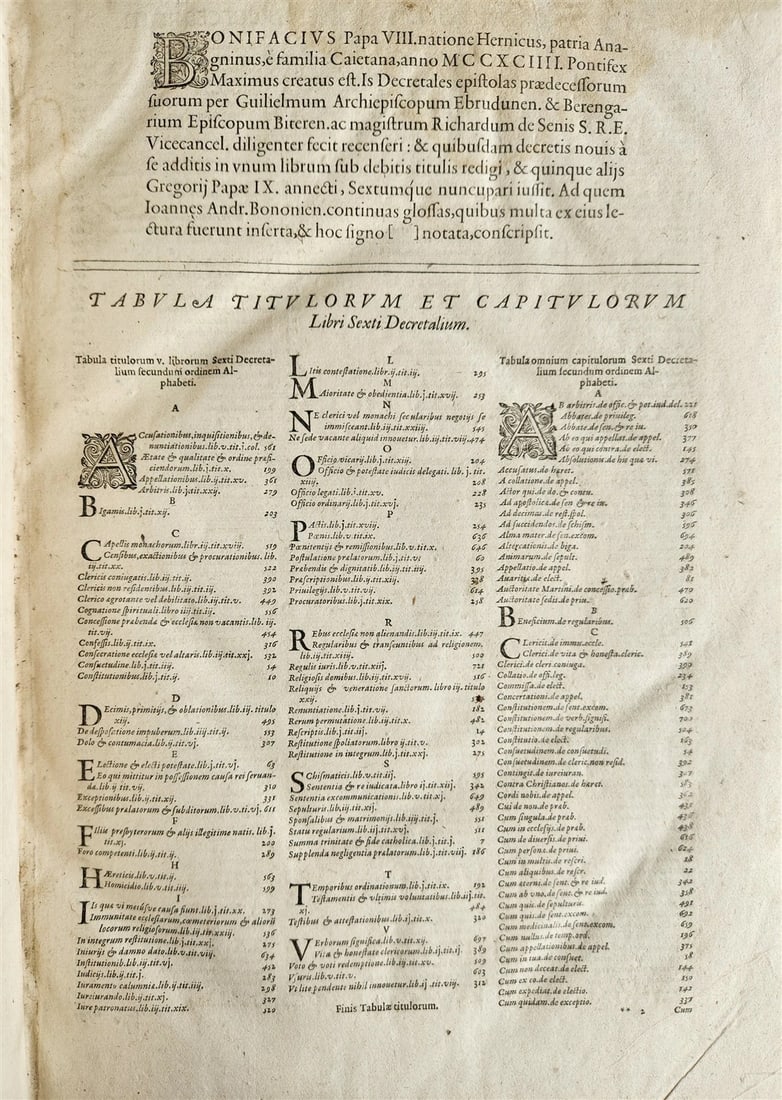 BONIFACIVS Papa VIII.natione Hernicus, patria Ana-
gninus,è familia Caietana,anno MCCXCIIII. Pontifex
Maximus creatus est.Is Decretales epistolas prædecessorum
suorum per Guilielmum Archiepiscopum Ebrudunen. & Berenga-
rium Episcopum Biteren.ac magistrum Richardum de Senis S. R. E.
Vicecancel. diligenter fecit recenseri : & quibusdam decretis nouis à
se additis in vnum librum sub debitis titulis redigi, & quinque alijs
Gregorij Papæ IX. annecti, Sextumque nuncupari iussit. Ad quem
Ioannes Andr.Bononien.continuas glossas,quibus multa ex eius le-
ctura fuerunt inserta,& hoc signo [ ] notata,conscripsit.
TABVLA TITVLORVM ET CAPITVLORVM
Libri Sexti Decretalium.
Tabula titulorum v. librorum Sexti Decreta-
lium secundum ordinem Al-
phabeti.
A
ACcusationibus,inquisitionibus,& de-
nuntiationibus.lib.v.tit.j.col. 561
Ætate & qualitate & ordine præfi-
ciendorum.lib.j.tit.x. 199
Appellationibus.lib.ij.tit.xv. 361
Arbitris.lib.j.tit.xxij. 279
B
BIgamis.lib.j.tit.xij. 203
C
CApellis monachorum.libr.iij.tit.xviij. 519
Censibus,exactionibus & procurationibus.lib.
iij.tit.xx. 522
Clericis coniugatis.lib.iij.tit.ij. 390
Clericis non residentibus.lib.iij.tit.iij. 392
Clerico ægrotante vel debilitato.lib.iij.tit.v. 449
Cognatione spirituali.libro iiij.tit.iij. 556
Concessione præbendæ & ecclesiæ non vacantis.lib.iij.
tit.vij. 454
Confessis.lib.ij.tit.ix. 316
Consecratione ecclesiæ vel altaris.lib.iij.tit.xxj. 532
Consuetudine.lib.j.tit.iiij. 54
Constitutionibus.lib.j.tit.ij. 10
D
DEcimis,primitijs,& oblationibus.lib.iij.titulo
xiij. 495
De desponsatione impuberum.lib.iiij.tit.ij. 553
Dolo & contumacia.lib.ij.tit.vj. 307
E
ELectione & electi potestate.lib.j.tit.vj. 63
Eo qui mittitur in possessionem causa rei seruan-
dæ.lib.ij.tit.vij. 310
Exceptionibus.lib.ij.tit.xij. 331
Excessibus prælatorum & subditorum.lib.v.ti.vj. 611
F
FIliis presbyterorum & alijs illegitime natis.lib.j.
tit.xj. 200
Foro competenti.lib.ij.tit.ij. 289
H
HÆreticis.lib.v.tit.ij. 563
Homicidio.lib.v.tit.iiij. 599
I
IIs quæ vi metúsve causa fiunt.lib.j.tit.xx. 273
Immunitate ecclesiarum,cœmeteriorum & aliorū
locorum religiosorum.lib.iij.tit.xxiij. 536
In integrum restitutione.lib.j.tit.xxj. 275
Iniurijs & damno dato.lib.v.tit.viij. 634
Institutionib.lib.iij.tit.vj. 452
Iudicijs.lib.ij.tit.j. 283
Iuramento calumniæ.lib.ij.tit.iiij. 298
Iureiurando.lib.ij.tit.xj. 327
Iure patronatus.lib.iij.tit.xix. 520
L
LItis contestatione.libr.ij.tit.iij. 295
M
MAioritate & obedientia.lib.j.tit.xvij. 253
N
NE clerici vel monachi sæcularibus negotijs se
immisceant.lib.iij.tit.xxiiij. 545
Ne sede vacante aliquid innouetur.lib.iij.tit.viij. 474
O
OFficio vicarij.lib.j.tit.xiij. 204
Officio & potestate iudicis delegati. lib.j. tit.
xiiij. 208
Officio legati.lib.j.tit.xv. 228
Officio ordinarij.lib.j.tit.xvj. 235
P
PActis.lib.j.tit.xviij. 254
Pœnis.lib.v.tit.ix. 636
Pœnitentijs & remissionibus.lib.v.tit.x. 646
Postulatione prælatorum.lib.j.tit.v. 60
Præbendis & dignitatib.lib.iij.tit.iiij. 395
Præscriptionibus.lib.ij.tit.xiij. 338
Priuilegijs.lib.v.tit.vij. 614
Procuratoribus.lib.j.tit.xix. 258
R
REbus ecclesiæ non alienandis.lib.iij.tit.ix. 447
Regularibus & transeuntibus ad religionem.
lib.iij.tit.xiiij. 500
Regulis iuris.lib.v.tit.xiij. 721
Religiosis domibus.lib.iij.tit.xvij. 516
Reliquijs & veneratione sanctorum.libro iij.titulo
xxij.
Renuntiatione.lib.j.tit.vij. 182
Rerum permutatione.lib.iij.tit.x. 482
Rescriptis.lib.j.tit.iij. 14
Restitutione spoliatorum.libro ij.tit.v. 302
Restitutione in integrum.lib.j.tit.xxj. 275
S
SChismaticis.lib.v.tit.iij. 595
Sententia & re iudicata.libro ij.tit.xiiij. 342
Sententia excommunicationis.lib.v.tit.xj. 649
Sepulturis.lib.iij.tit.xij. 489
Sponsalibus & matrimonijs.lib.iiij.tit.j. 551
Statu regularium.lib.iij.tit.xvj. 511
Summa trinitate & fide catholica.lib.j.tit.j. 7
Supplenda negligentia prælatorum.lib.j.tit.viij. 186
T
TEmporibus ordinationum.lib.j.tit.ix. 192
Testamentis & vltimis voluntatibus.lib.iij.tit.
xj. 484
Testibus & attestationibus.lib.ij.tit.x. 320
V
VErborum significa.lib.v.tit.xij. 697
Vita & honestate clericorum.lib.iij.tit.j. 389
Voto & voti redemptione.lib.iij.tit.xv. 509
Vsuris.lib.v.tit.v. 603
Vt lite pendente nihil innouetur.lib.ij.tit.viij. 312
Finis Tabulæ titulorum.
Tabula omnium capitulorum Sexti Decreta-
lium secundum ordinem Al-
phabeti.
A
AB arbitris.de offic.& pot.iud.del. 221
Abbates.de priuileg. 618
Abbate.de sen.& re iu. 350
Ab eo qui appellat.de appel. 377
Ab eo qui contra.de elect. 145
Absolutionu.de his quæ vi. 274
Accusatus.de hæret. 571
A collatione.de appel. 385
Actor qui.de do.& contu. 308
Ad apostolicæ.de sen.& re iu. 346
Ad decimas.de rest.spol. 306
Ad succidendos.de schism. 596
Alma mater.de sen.excom. 694
Altercationis.de biga. 204
Animarum.de sepult. 489
Appellatio.de appel. 382
Auaritiæ.de elect. 85
Auctoritate Martini.de concessio.præb. 470
Auctoritate sedis.de priu. 620
B
BEneficium.de regularibus. 506
C
CLericis.de immu.eccle. 541
Clerici.de vita & honesta.cleric. 389
Clerici.de cleri.coniuga. 390
Collatio.de offi.leg. 234
Commissa.de elect. 153
Concertationi.de appel. 382
Constitutionem.de sent.excom. 673
Constitutionem.de verb.signifi. 700
Constitutionem.de regularibus. 504
Constitutio.de elect. 163
Consuetudinem.de consuetudi. 54
Consuetudinem.de cleric.non resid. 392
Contingit.de iureiuran.
Contra Christianos.de hæret. 583
Cordi nobis.de appel. 362
Cui de non.de præb.
Cum singula.de præb. 436
Cum in ecclesijs.de præb. 438
Cum de diuersis.de priui. 616
Cum persona.de priui. 624
Cum in multis.de rescri. 28
Cum aliquibus.de rescr. 22
Cum æterni.de sent. & re iud. 342
Cum ab vno.de sent. & re iud. 348
Cum quis.de sepulturis. 491
Cum quis.de sent.excom. 692
Cum medicinalis.de sent.excom. 659
Cum nullus.de temp.ord. 196
Cum appellationibus.de appel. 375
Cum in tua.de consuet. 58
Cum non deceat.de elect. 144
Cum ex eo.de elect. 150
Cum expediat.de electio. 142
Cum quidam.de exceptio. 337
** 2 Cum